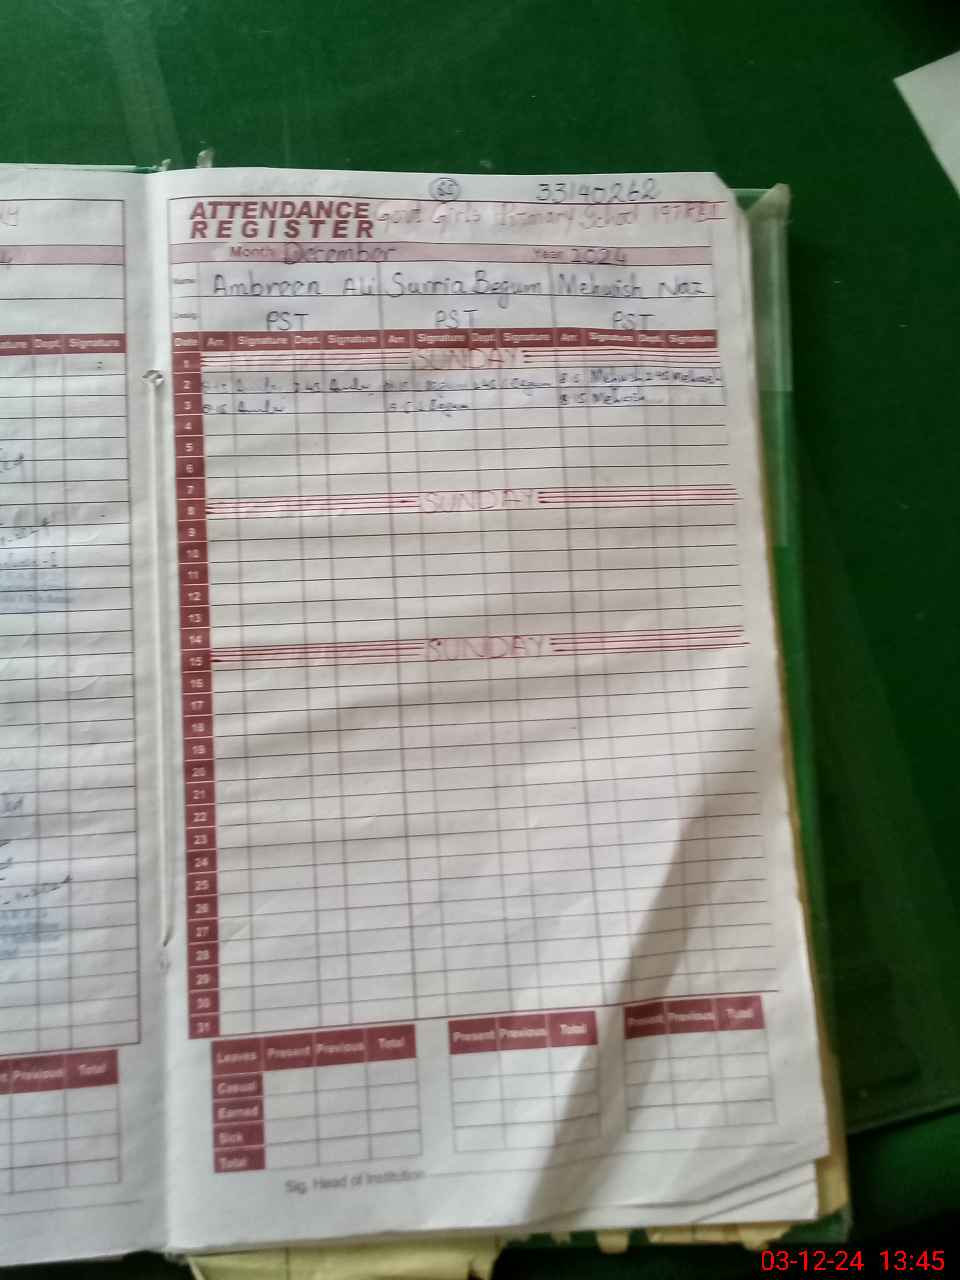 65
33140262
ATTENDANCE
REGISTER
Govt Girls Primary School
Month December Year 2024
Name Ambreen Ali Surria Begum Mehwish Naz
Desig. PST PST PST
Date Arr. Signature Dept. Signature Arr. Signature Dept. Signature Arr. Signature Dept. Signature
1 SUNDAY
2 Mehwish 2 45 Mehwish
3 8 15 Begum 8 15 Mehwish
4
5
6
7
8 SUNDAY
9
10
11
12
13
14
15 SUNDAY
16
17
18
19
20
21
22
23
24
25
26
27
28
29
30
31
Leaves Present Previous Total Present Previous Total Present Previous Total
Casual
Earned
Sick
Total
Sig. Head of Institution
Dept. Signature
Previous Total
03-12-24 13:45